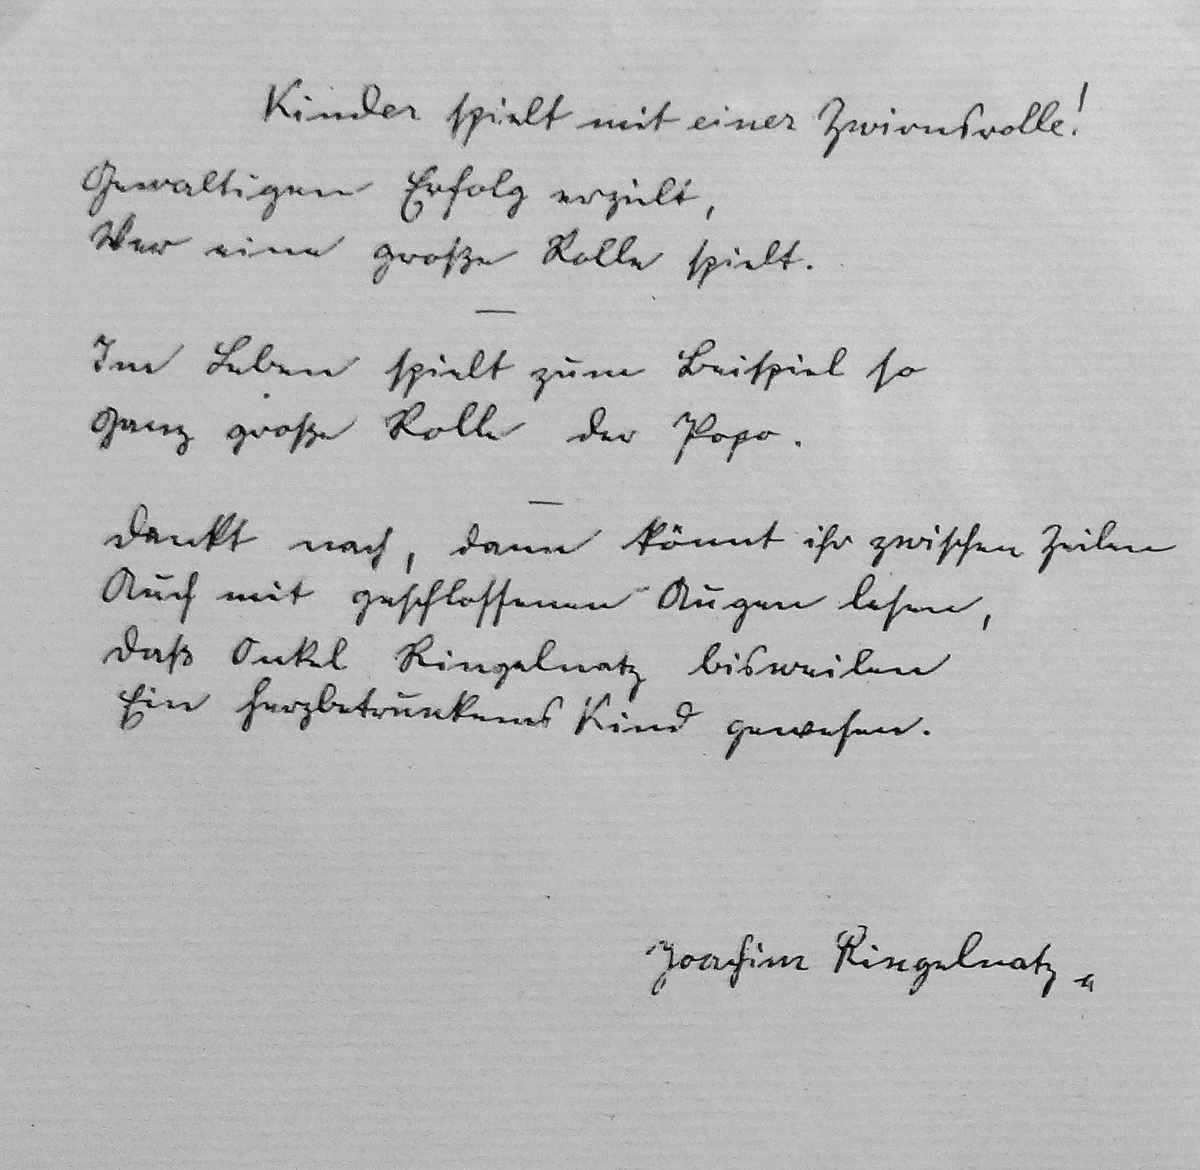 Kinder spielt mit einer Zwirnsrolle!
Gewaltigen Erfolg erzielt,
Wer eine große Rolle spielt.
Im Leben spielt zum Beispiel so
Ganz große Rolle der Popo.
Denkt nach, dann könnt ihr zwischen Zeilen
Auch mit geschlossenen Augen lesen,
Daß Onkel Ringelnatz bisweilen
Ein herzbetrunkenes Kind gewesen.
Joachim Ringelnatz